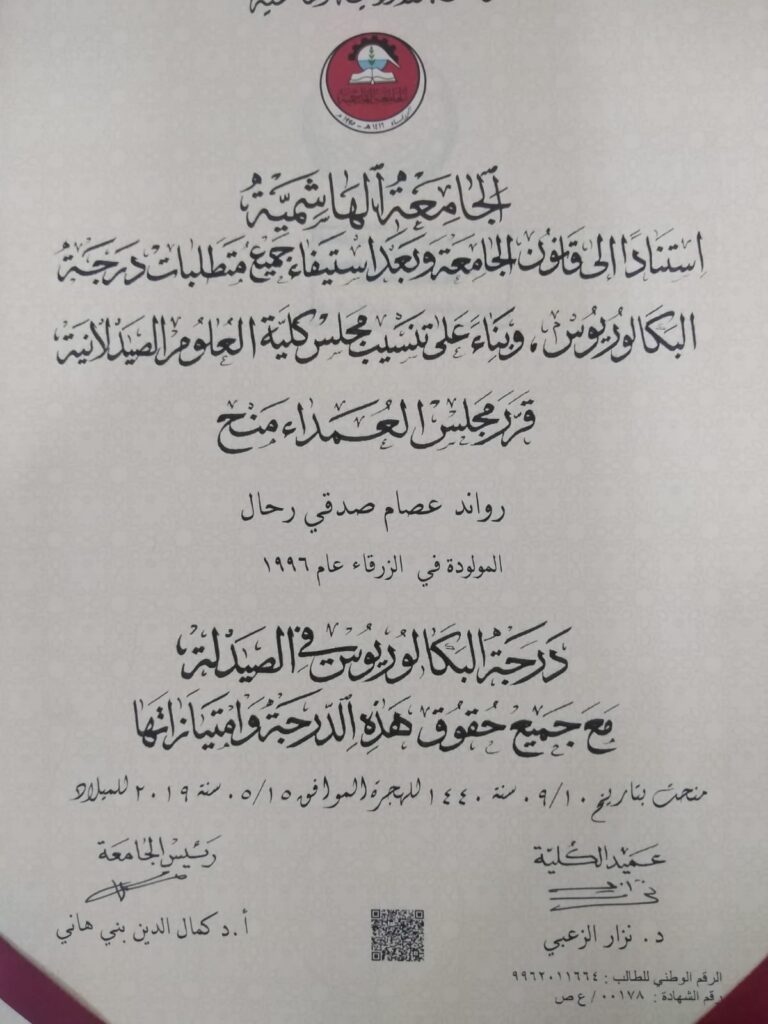 الجامعة الهاشمية
١٤١٦ هـ - ١٩٩٥ م
الجَامِعَةُ الهَاشِمِيَّةُ
استنادًا الى قانون الجامعة وبعد استيفاء جميع متطلبات درجة
البكالوريوس، وبناءً على تنسيب مجلس كلية العلوم الصيدلانية
قرر مجلس العمداء منح
رواند عصام صدقي رحال
المولودة في الزرقاء عام ١٩٩٦
درجة البكالوريوس في الصيدلة
مع جميع حقوق هذه الدرجة وامتيازاتها
منحت بتاريخ ٠٩/١٠ سنة ١٤٤٠ للهجرة الموافق ٠٥/١٥ سنة ٢٠١٩ للميلاد
عميد الكلية
د. نزار الزعبي
رئيس الجامعة
أ.د كمال الدين بني هاني
الرقم الوطني للطالب : ٩٩٦٢٠١١٦٦٤
رقم الشهادة : ٠٠١٧٨ / ع ص